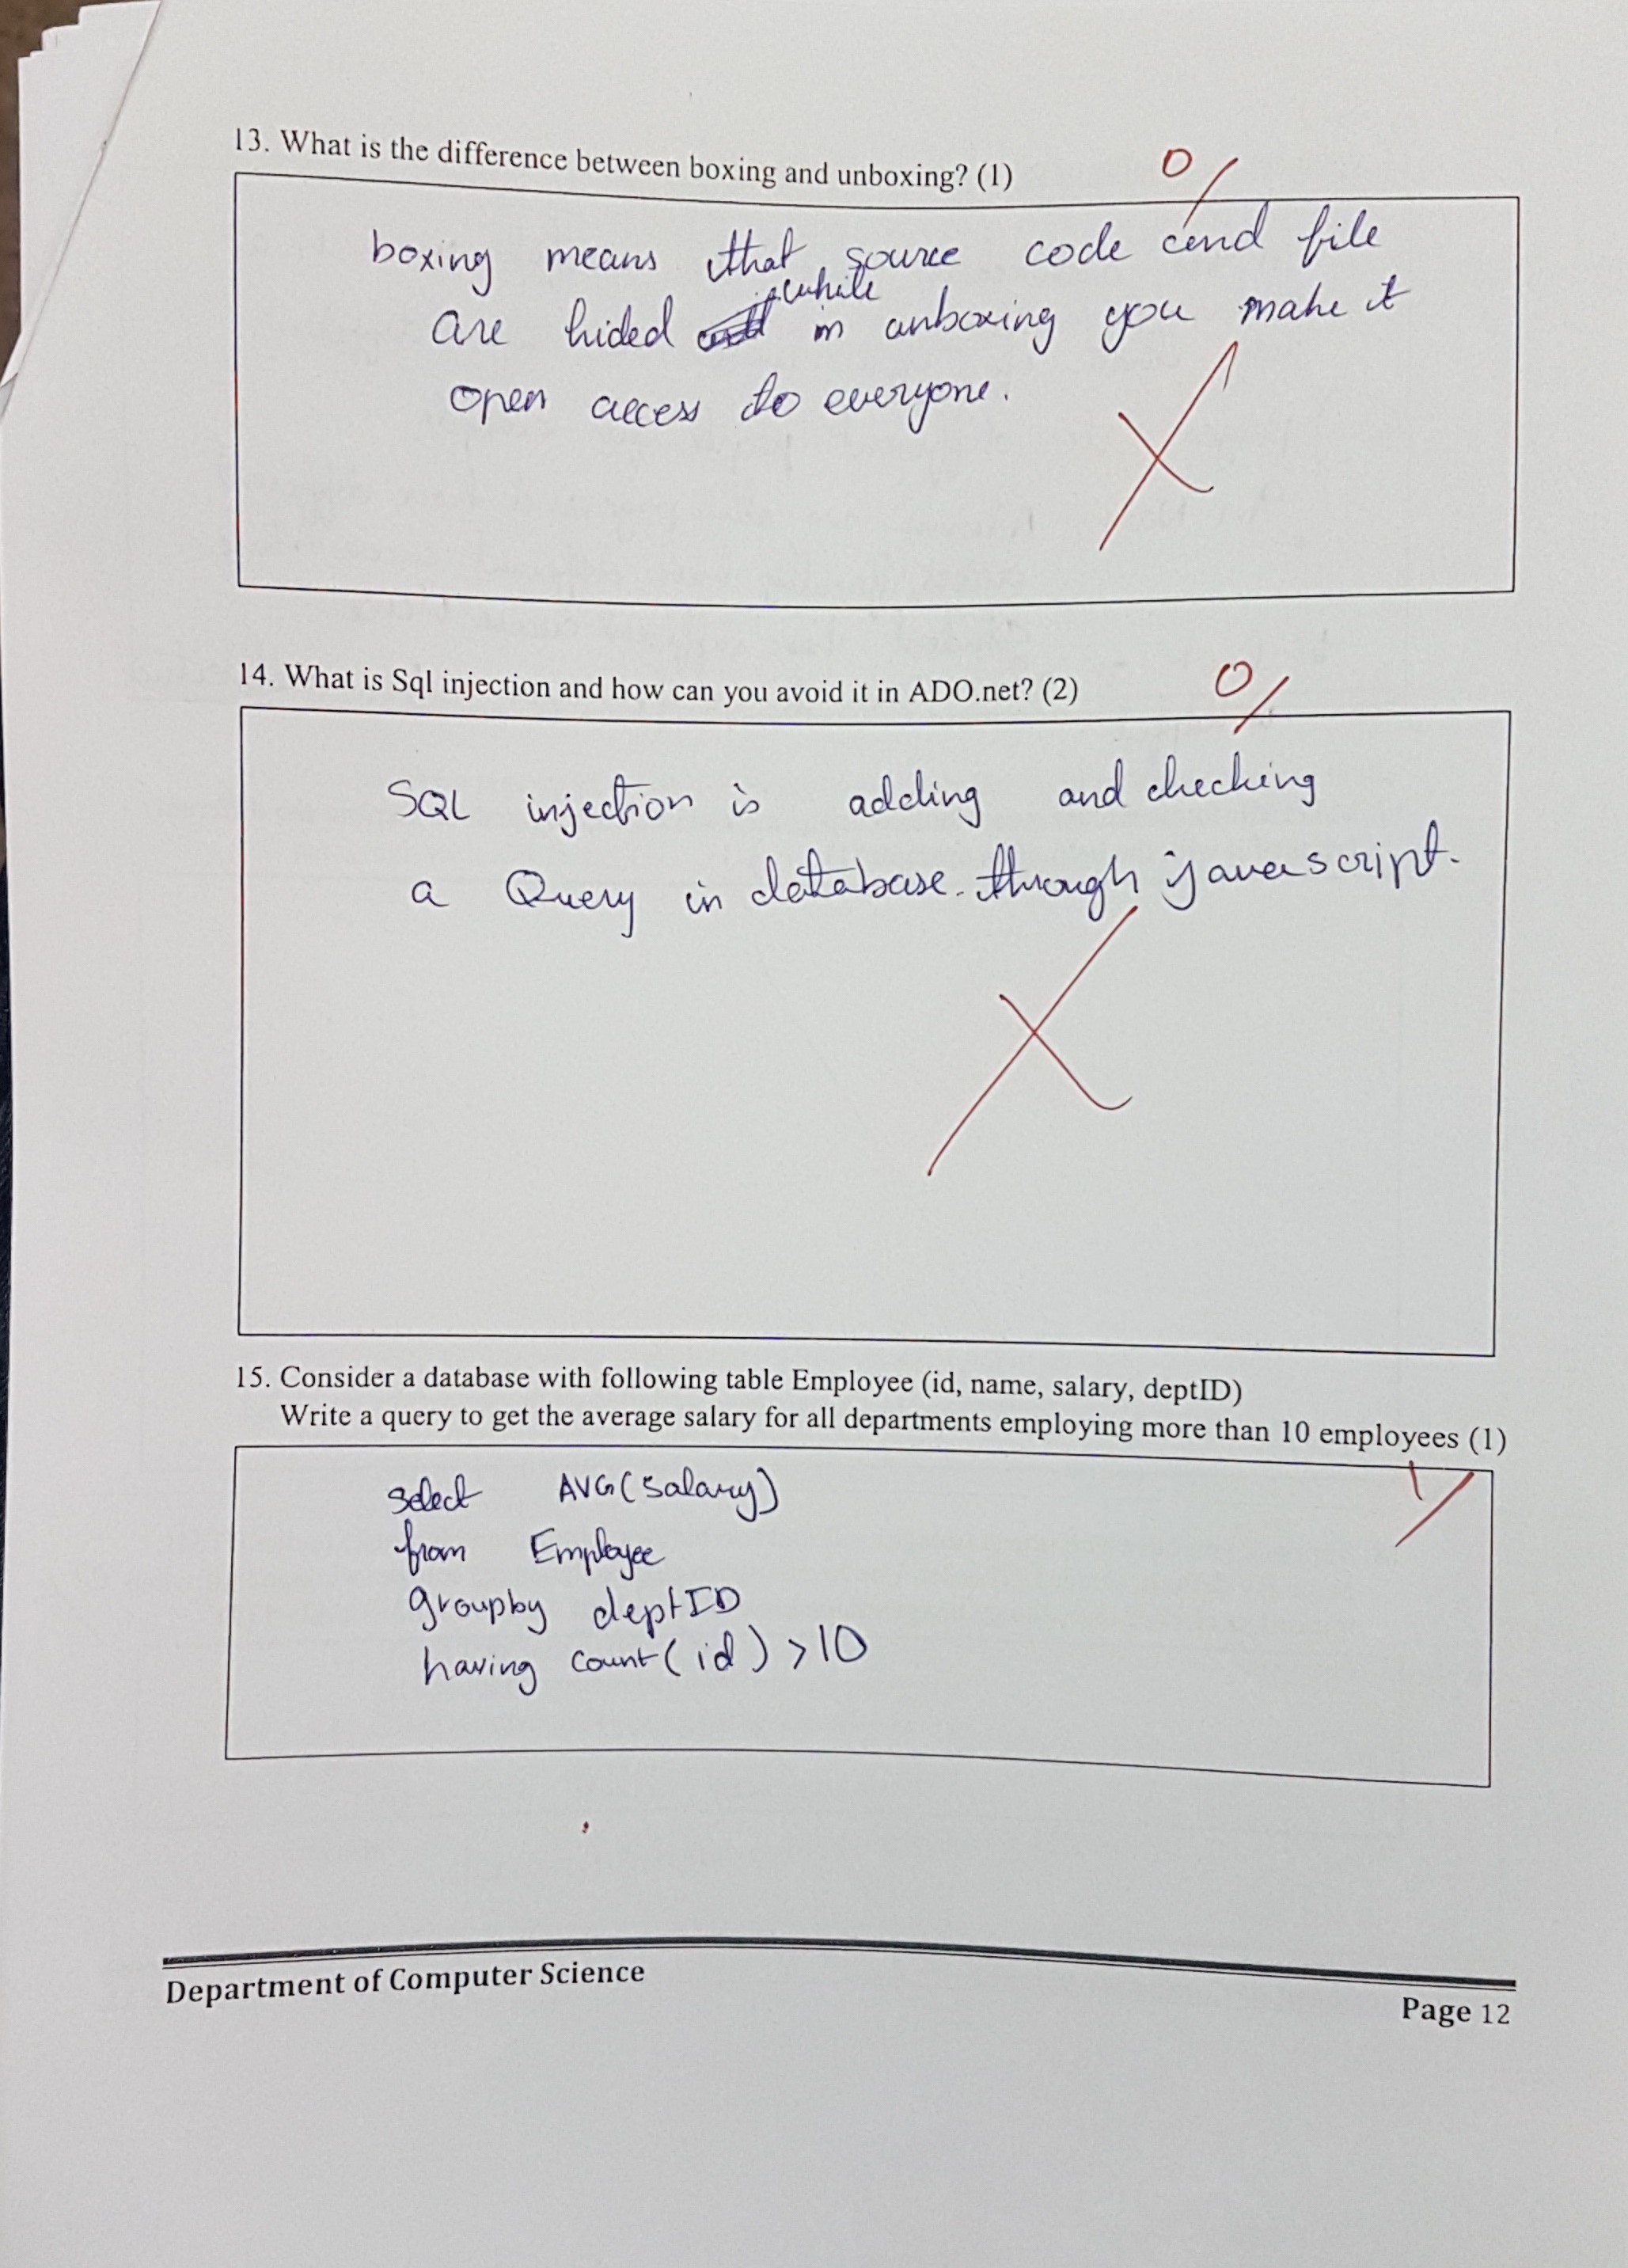 13. What is the difference between boxing and unboxing? (1)
0/
boxing means that source code and file
are hided while in unboxing you make it
open access to everyone.
14. What is Sql injection and how can you avoid it in ADO.net? (2)
0/
SQL injection is adding and checking
a Query in database through javascript.
15. Consider a database with following table Employee (id, name, salary, deptID)
Write a query to get the average salary for all departments employing more than 10 employees (1)
1/
select AVG(salary)
from Employee
groupby deptID
having count(id) >10
Department of Computer Science
Page 12